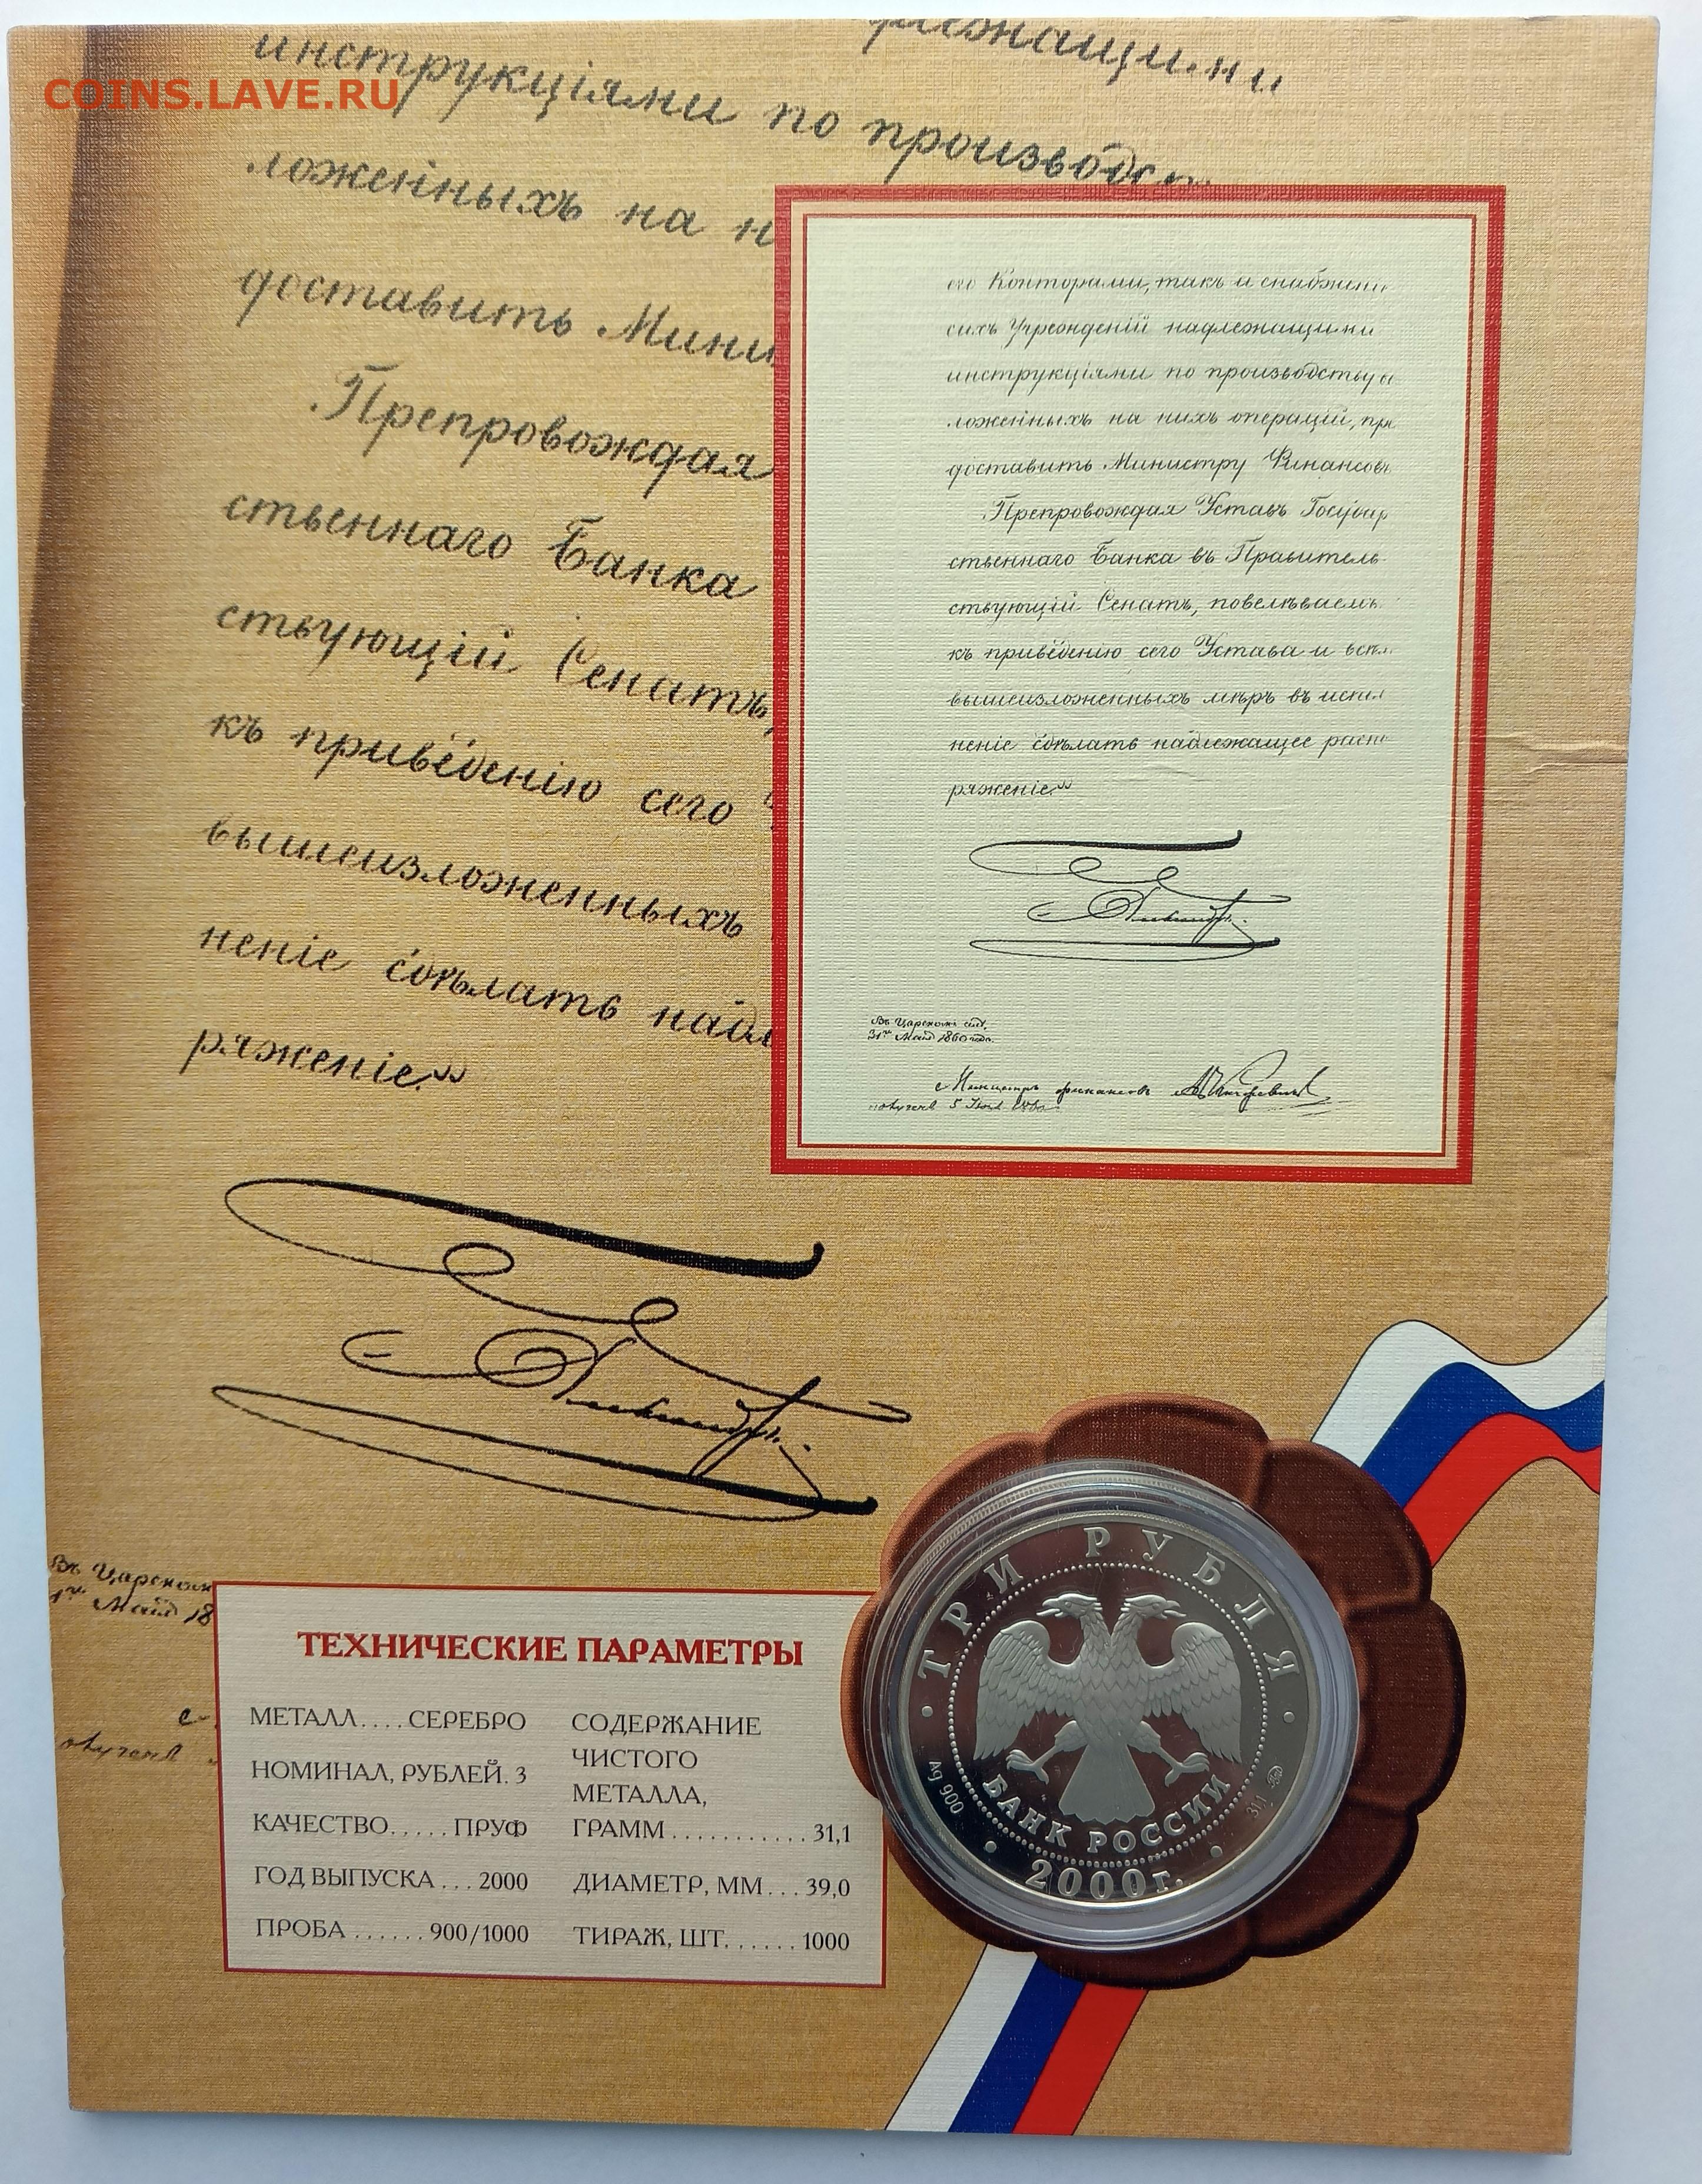 COINS.LAVE.RU
инструкціями по производс
ложенныхъ на н
доставить Мини
Препровождая
ственнаго Банка
ствующій Сенатъ,
къ приведенію сего
вышеизложенныхъ
неніе сдѣлать надл
ряженіе."
его Конторами, такъ и снабжені
сихъ Учрежденій надлежащими
инструкціями по производству в
ложенныхъ на нихъ операцій, пре
доставить Министру Финансовъ
Препровождая Уставъ Государ
ственнаго Банка въ Правитель
ствующій Сенатъ, повелѣваемъ
къ приведенію сего Устава и всѣ
вышеизложенныхъ мѣръ въ испол
неніе сдѣлать надлежащее распо
ряженіе."
Александръ
Въ Царскомъ селѣ.
31го Мая 1860 года.
Министръ финансовъ
Александръ
Въ Царском
Мая 18
ТЕХНИЧЕСКИЕ ПАРАМЕТРЫ
МЕТАЛЛ....СЕРЕБРО
НОМИНАЛ, РУБЛЕЙ. 3
КАЧЕСТВО.....ПРУФ
ГОД ВЫПУСКА ...2000
ПРОБА ......900/1000
СОДЕРЖАНИЕ
ЧИСТОГО
МЕТАЛЛА,
ГРАММ............31,1
ДИАМЕТР, ММ...39,0
ТИРАЖ, ШТ.......1000
ТРИ РУБЛЯ
Ag 900
31,1
БАНК РОССИИ
2000г.